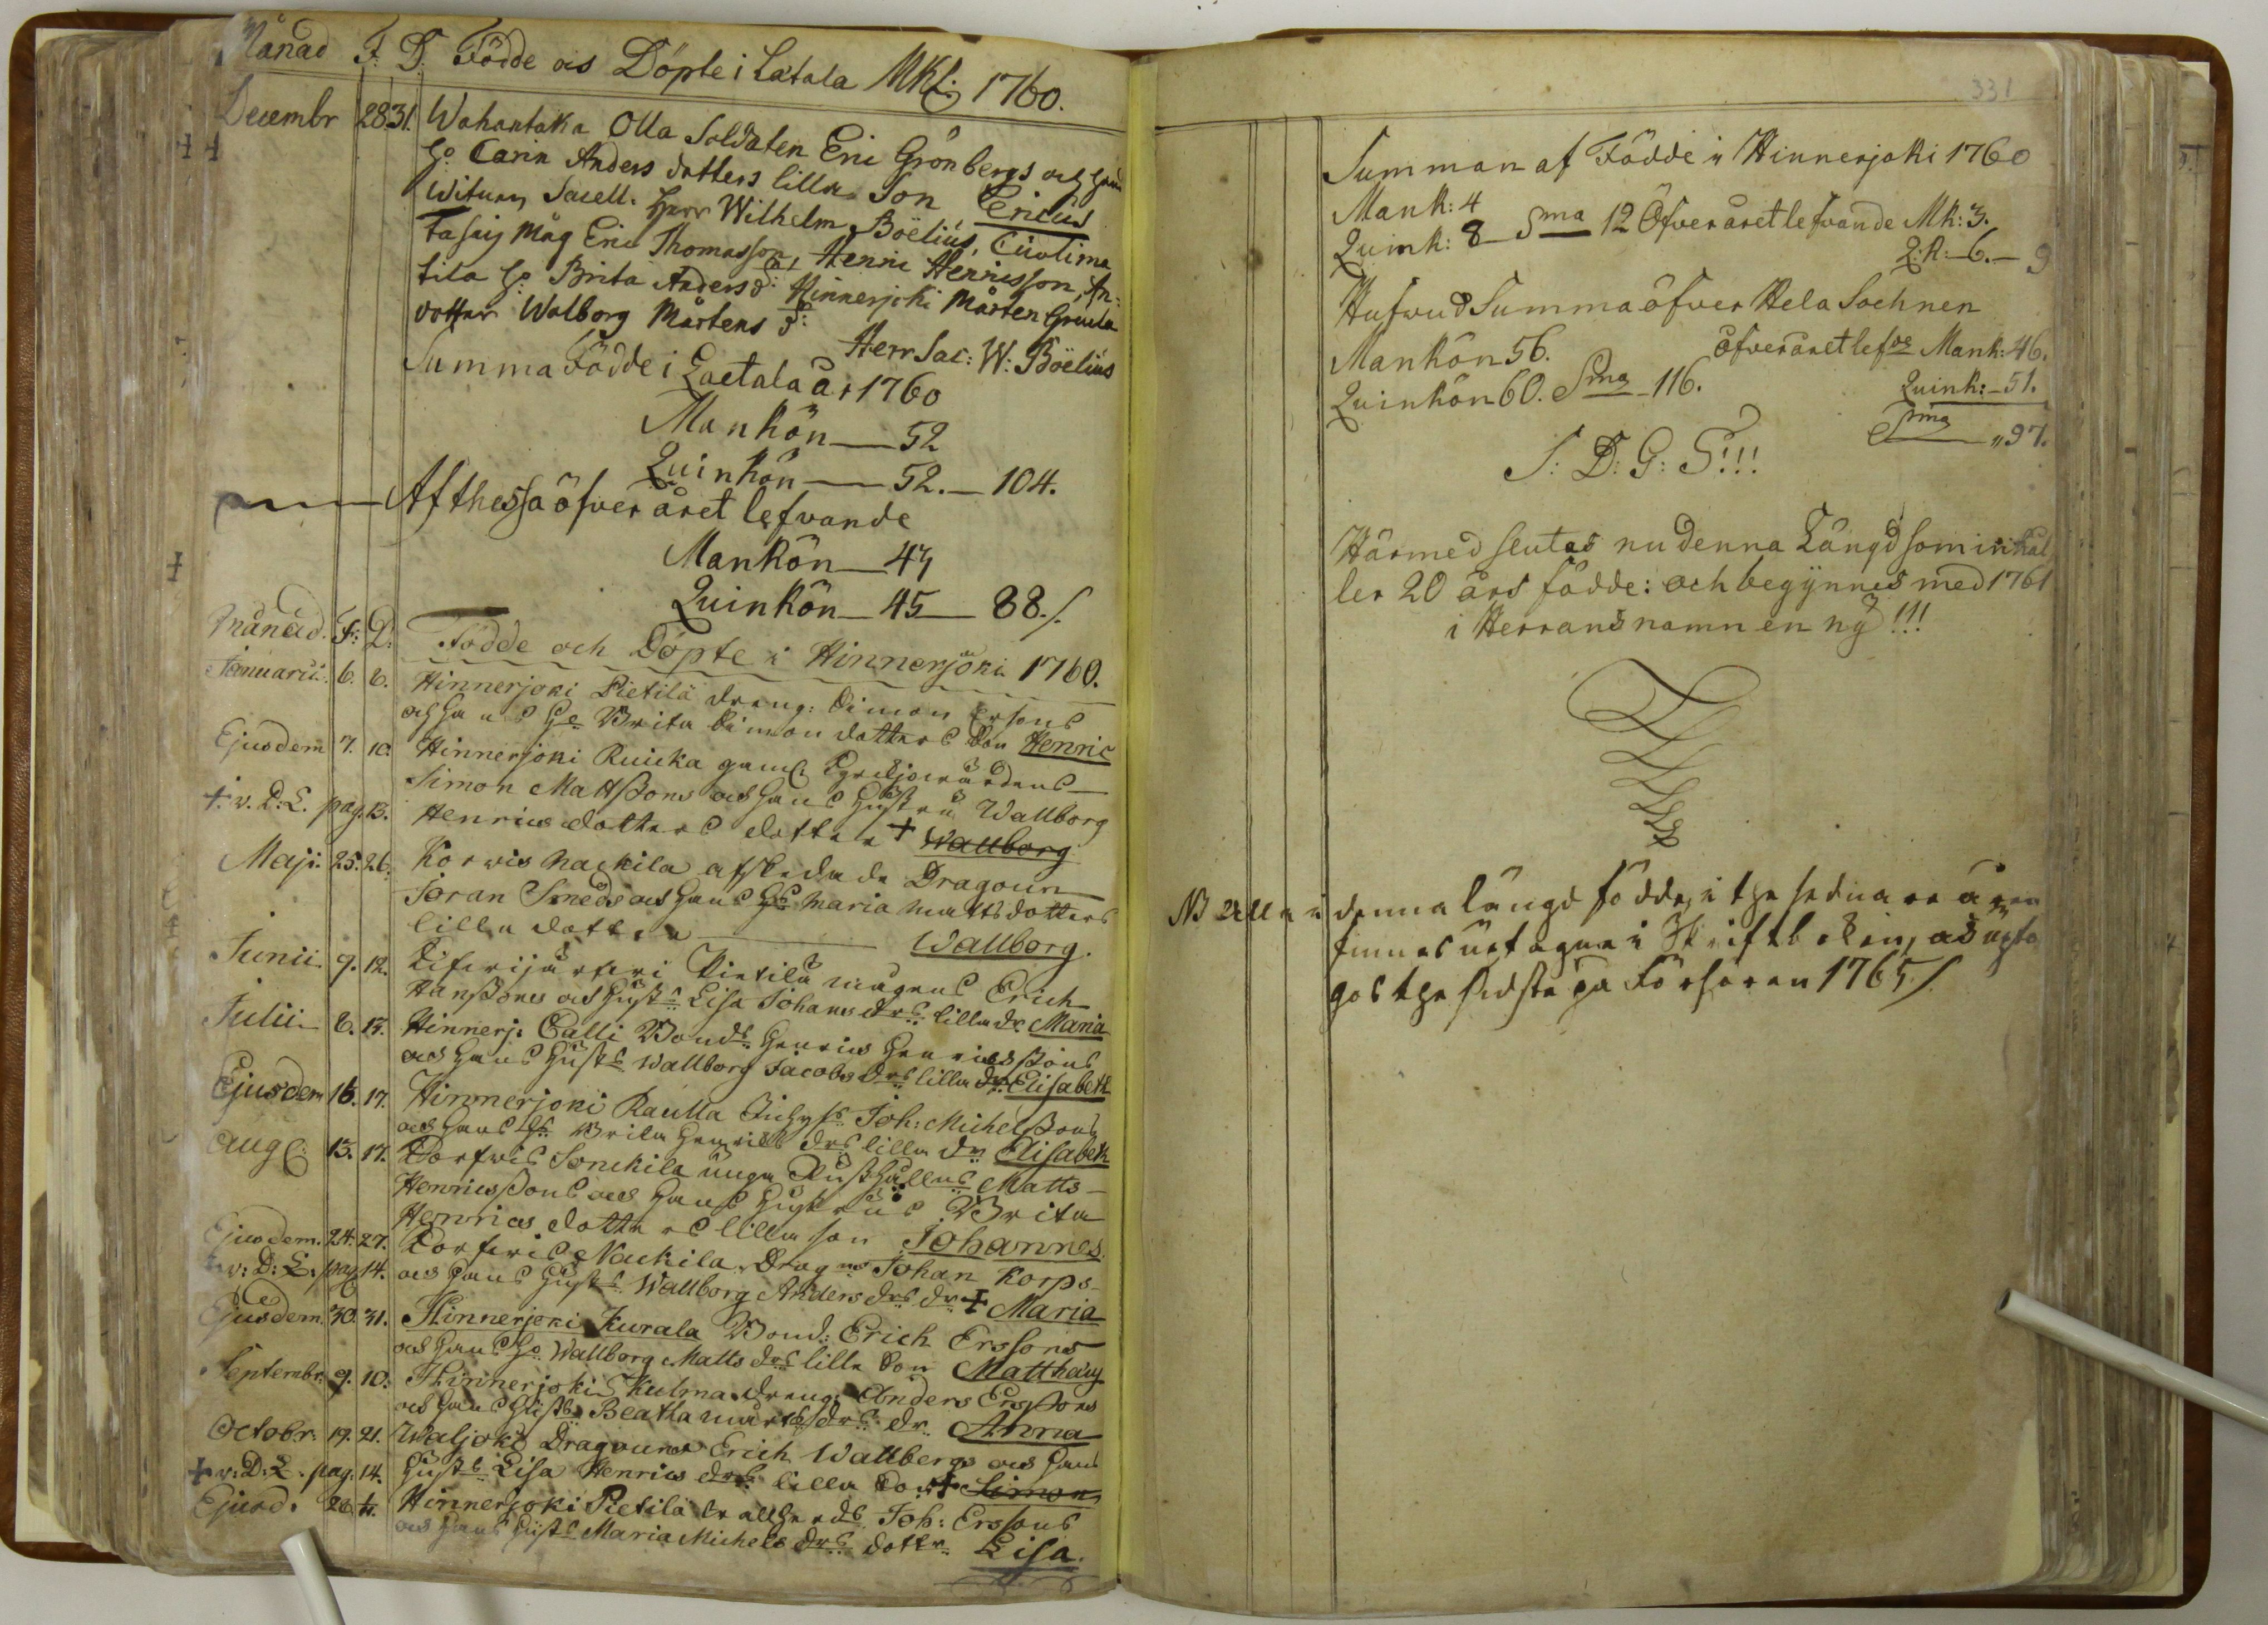 Månad F. D. Födde och Döpte i Latala MKf. 1760.
Decembr 28 31. Wahantaka Olla Soldaten Eric Grönbergs och hans
ho. Carin Anders dotters lilla Son Ericus
Witnen Sacell. Herr Wilhelm Böelius,
Måg Eric Thomasson, Henric Henricsson, An:
tila ho. Brita Andersd: Hinnerjoki Mårten Greula
dotter Walborg Mårtens d: Herr Sac: W: Böelius
Summa Födde i Laetala år 1760
Mankön 52
Quinkön 52. 104.
Af thessa öfver året lefvande
Mankön
Quinkön 45 88./.
Månad. F: D: Födde och Döpte i Hinnerjoki 1760.
Januarii. 6. 8. Hinnerjoki Pietilä dreng: Simon Ersons
och hans ho Brita Simon dotters Son Henric
Ejusdem 7. 10. Hinnerjoki Ruicka gaml:
†. v. D: L. pag. 13. Simon Mattssons och hans hustru Wallborg
Henrics dotters dotter † Wallborg
Maji. 25. 26. Korvis Nackila afskedade Dragoun
Jöran Smeds och hans ho Maria Matts dotters
lilla dotter Wallborg.
Junii 9. 12. Pietilä mågens Erich
Hanssons och hustr. Lisa Johans drs lilla dr Maria
Julii 8. 13. Hinnerj: Calli Bond: Henrics Henricssons
och hans hustrs Wallborg Jacobs drs lilla dr. Elisabeth
Ejusdem 16. 17. Hinnerjoki Raulla Joh: Michelssons
och hans ho Brita Henrics drs lilla dr Elisabeth
Aug: 13. 17. Korfvis Sonckila unga Rusthållns Matts
Henricssons och hans hustrus Brita
Henrics dotters lilla son Johannes.
Ejusdem. 24. 27. Korfvis Nackila Dragns Johan Korps
† v: D: L: pag. 14. och hans hustrs Wallborg Anders drs dr † Maria
Ejusdem. 30. 31. Hinnerjoki Kurala Bond: Erich Erssons
och hans ho Wallborg Matts drs lilla Son Matthæus
Septembr: 9. 10. Hinnerjoki Kulma dreng: Anders Erssons
och hans hustrs Beatha Mårts drs dr. Anna
Octobr: 19. 21. Waljoki Dragouns Erich Wallbergs och hans
† v: D: L. pag. 14. hustrs Lisa Henrics drs lilla Son † Simon
Ejusd. 28. Hinnerjoki Pietilä Joh: Erssons
och hans hustrs Maria Michels drs dottr Lisa.
331
Summan af Födde i Hinnerjoki 1760
Mank: 4
Quink: 8 Sma 12 Öfver året lefvande Mk: 3.
Q: K: 6. 9
Hufwud Summa öfver Hela Sochnen
Mankön 56. öfver året lefde Mank: 46.
Quinkön 60. Sma 116. Quink: 51.
Sma 97.
S: D: G: S!!!
Härmed slutas nu denna Längd som inhål
ler 20 års födde: och begynnes med 1761
i Herrans namn en ny!!!
NB Alla i denna längd födde, i the sednare åren
finnas uttagna i Skriftboken, och
the sidsta på Förhören 1765./.